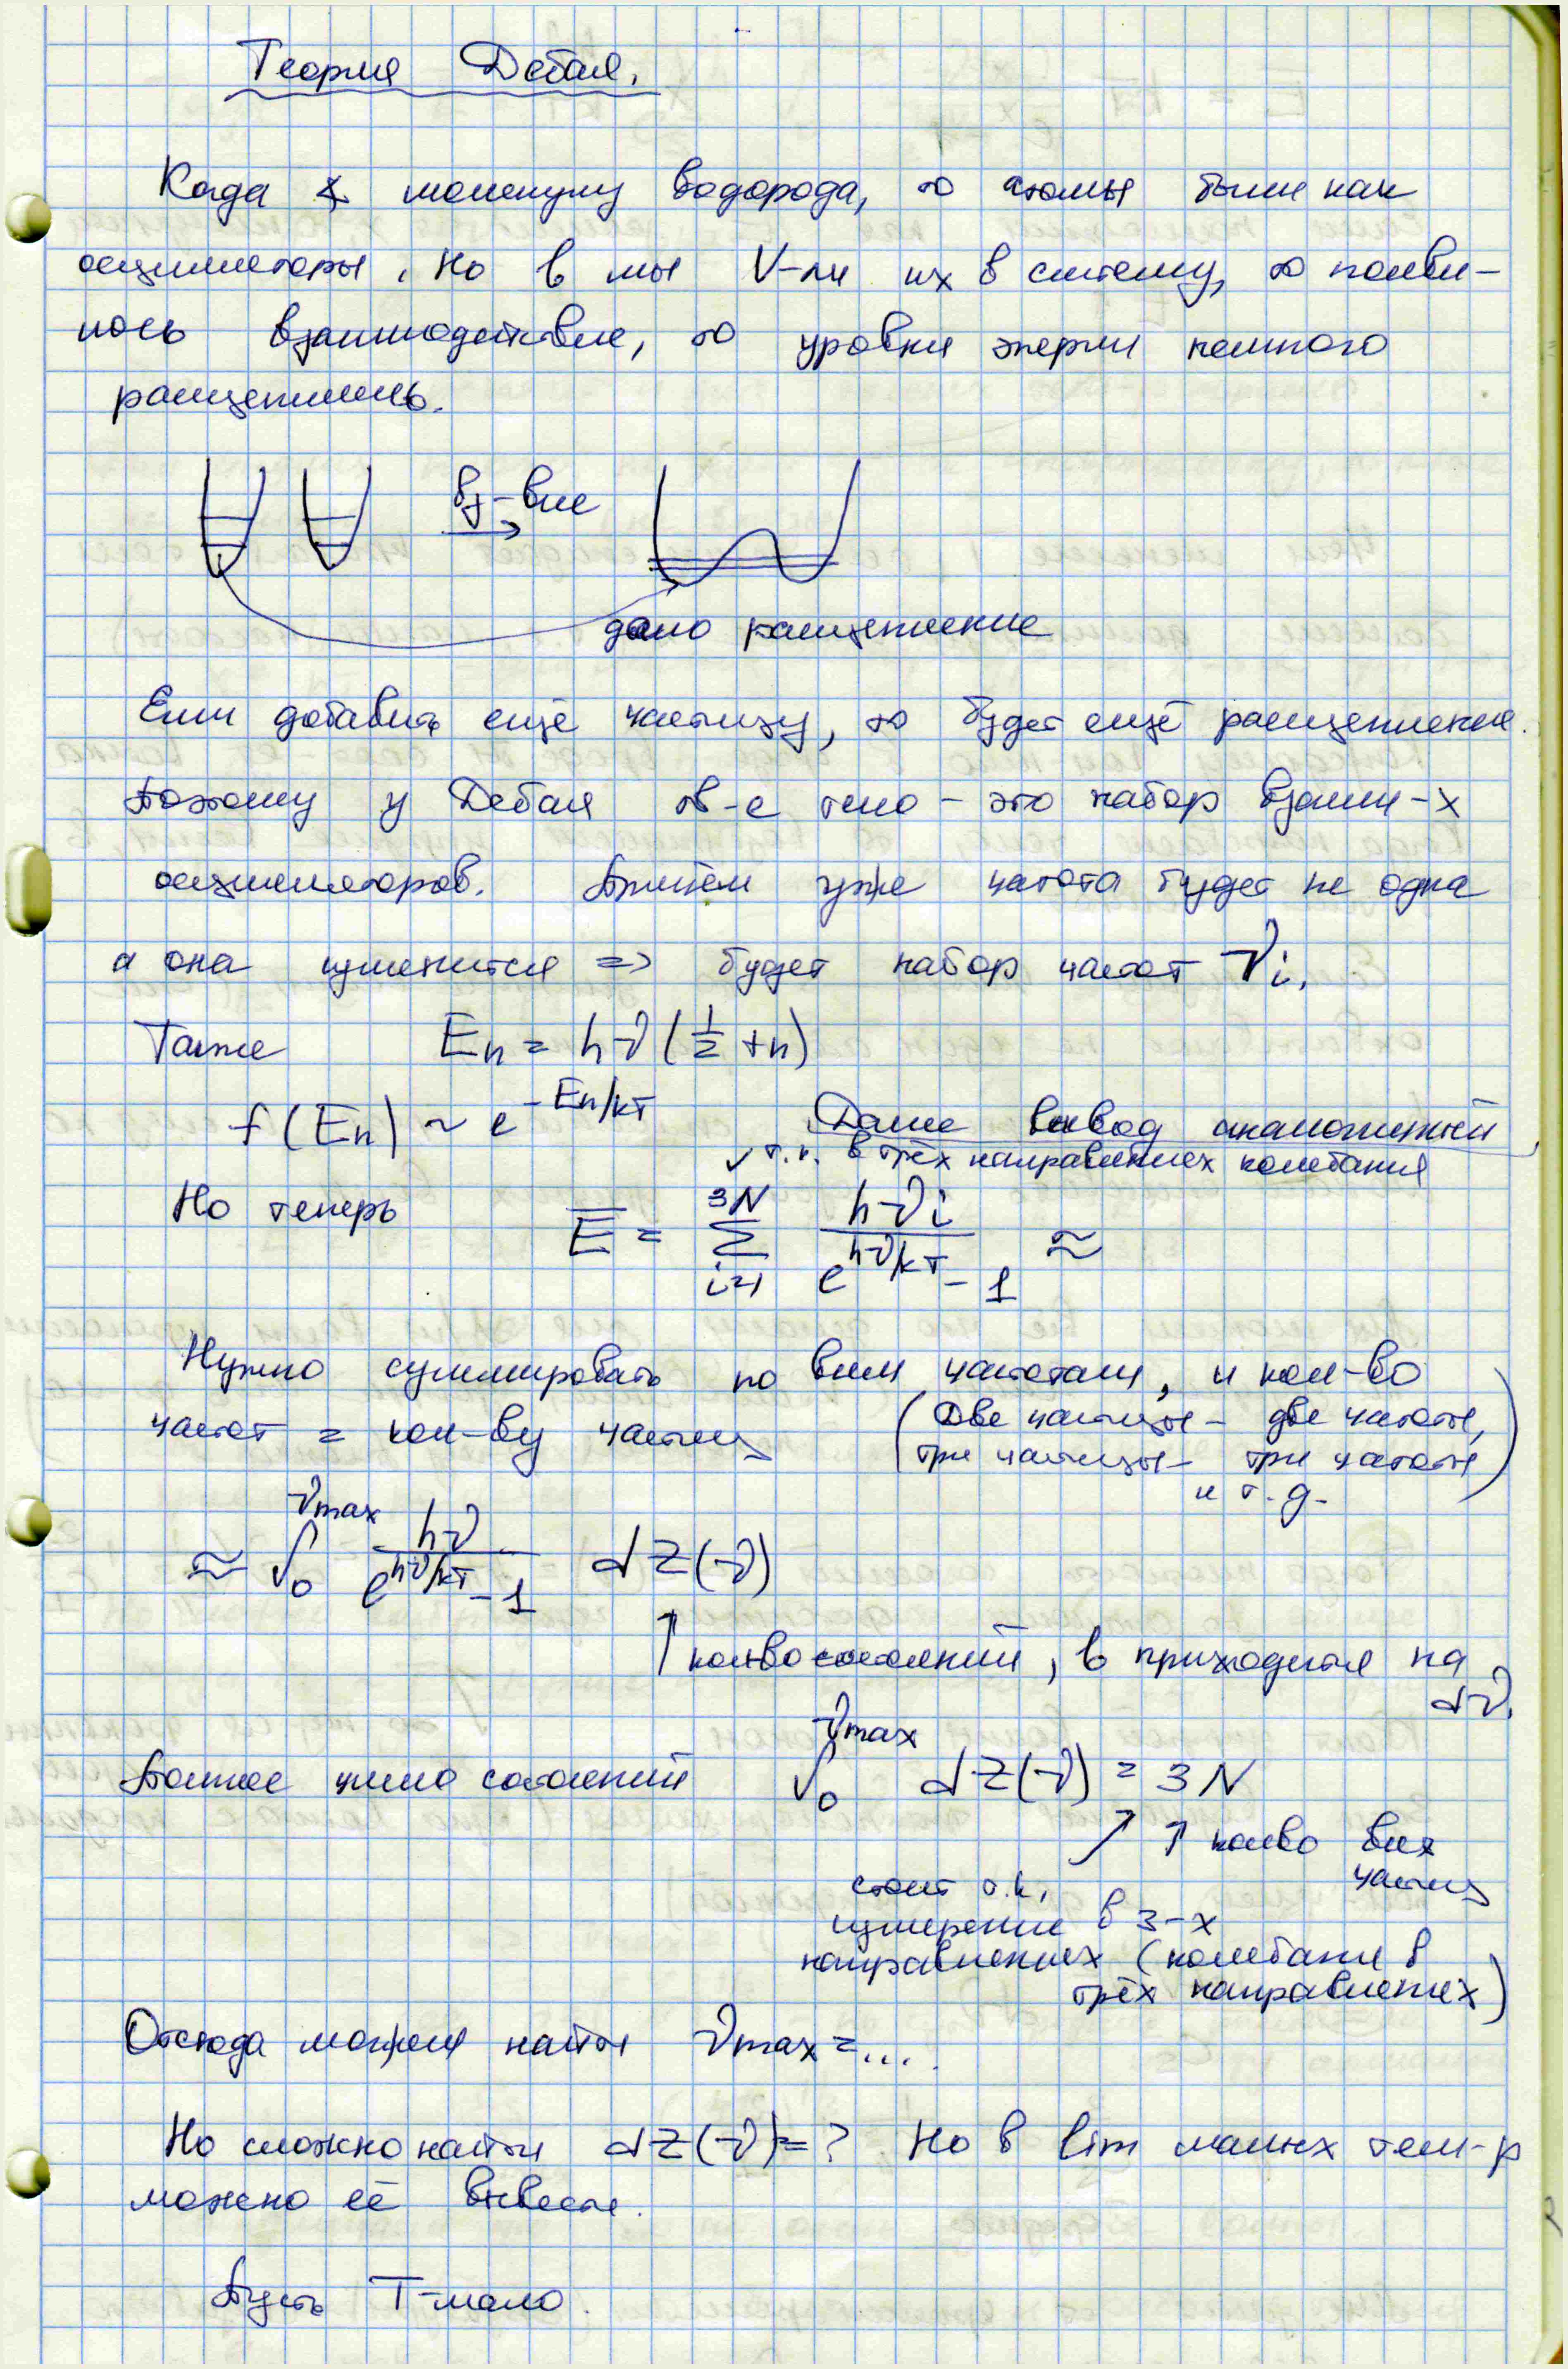 Теория Дебая.
Когда молекулу водорода, то атомы были как
осцилляторы. Но в мы V-ли их в систему, то появи-
лось взаимодействие, то уровни энергии немного
расщепились.
вз-вие
дано расщепление
Если добавить ещё частицу, то будет ещё расщепление.
Поэтому у Дебая тв-е тело - это набор взаим-х
осцилляторов. Причём уже частота будет не одна
а она изменится => будет набор частот νi.
Также En = hν(1/2 + n)
f(En) ~ e^(-En/kT) Далее вывод аналогичный
т.к. в трёх направлениях колебания
Но теперь Ē = Σ_{i=1}^{3N} hνi / (e^{hν/kT} - 1) ≈
Нужно суммировать по всем частотам, и кол-во
частот = кол-ву частиц (Две частицы - две частоты,
три частицы - три частоты
и т.д.)
≈ ∫_0^{νmax} hν / (e^{hν/kT} - 1) dZ(ν)
↑ кол-во состояний, в приходится на
dν.
Полное число состояний ∫_0^{νmax} dZ(ν) = 3N
↑ кол-во всех
частиц
стоит т.к.
измерение в 3-х
направлениях (колебания в
трёх направлениях)
Отсюда можем найти νmax = ...
Но сложно найти dZ(ν) = ? Но в lim малых тем-р
можно её вывести.
Пусть T-мало.